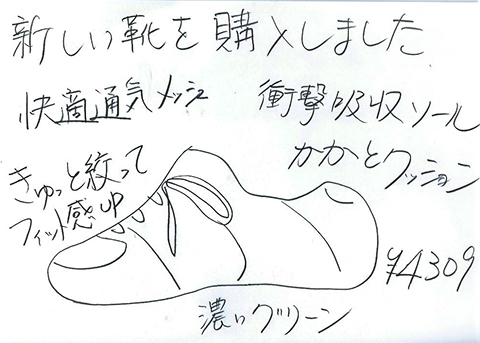 新しい靴を購入しました
快適通気メッシュ
衝撃吸収ソール
かかとクッション
きゅっと絞って
フィット感UP
¥4309
濃いグリーン